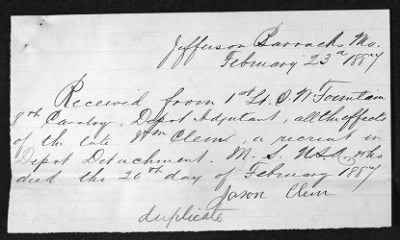 Jefferson Barracks Mo.
February 23d 1887
Received from 1st Lt. S. W. Fountain
8th Cavalry, Depot Adjutant, all the effects
of the late Wm Clem, a recruit in
Depot Detachment. M. S. U.S.A. who
died the 20th day of February 1887
Jason Clem
duplicate